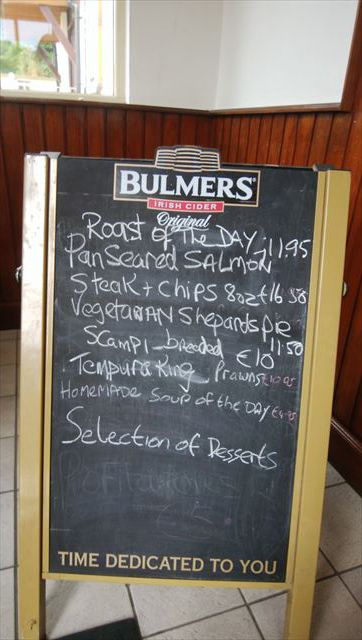 BULMERS
IRISH CIDER
Original
Roast of The DAY 11.95
Pan Seared SALMON
Steak + Chips 8oz €16.50
Vegetarian Shepards pie
11.50
Scampi breaded €10
Tempura King Prawns €10.95
HOMEMADE Soup of the DAY €4.95
Selection of Desserts
TIME DEDICATED TO YOU